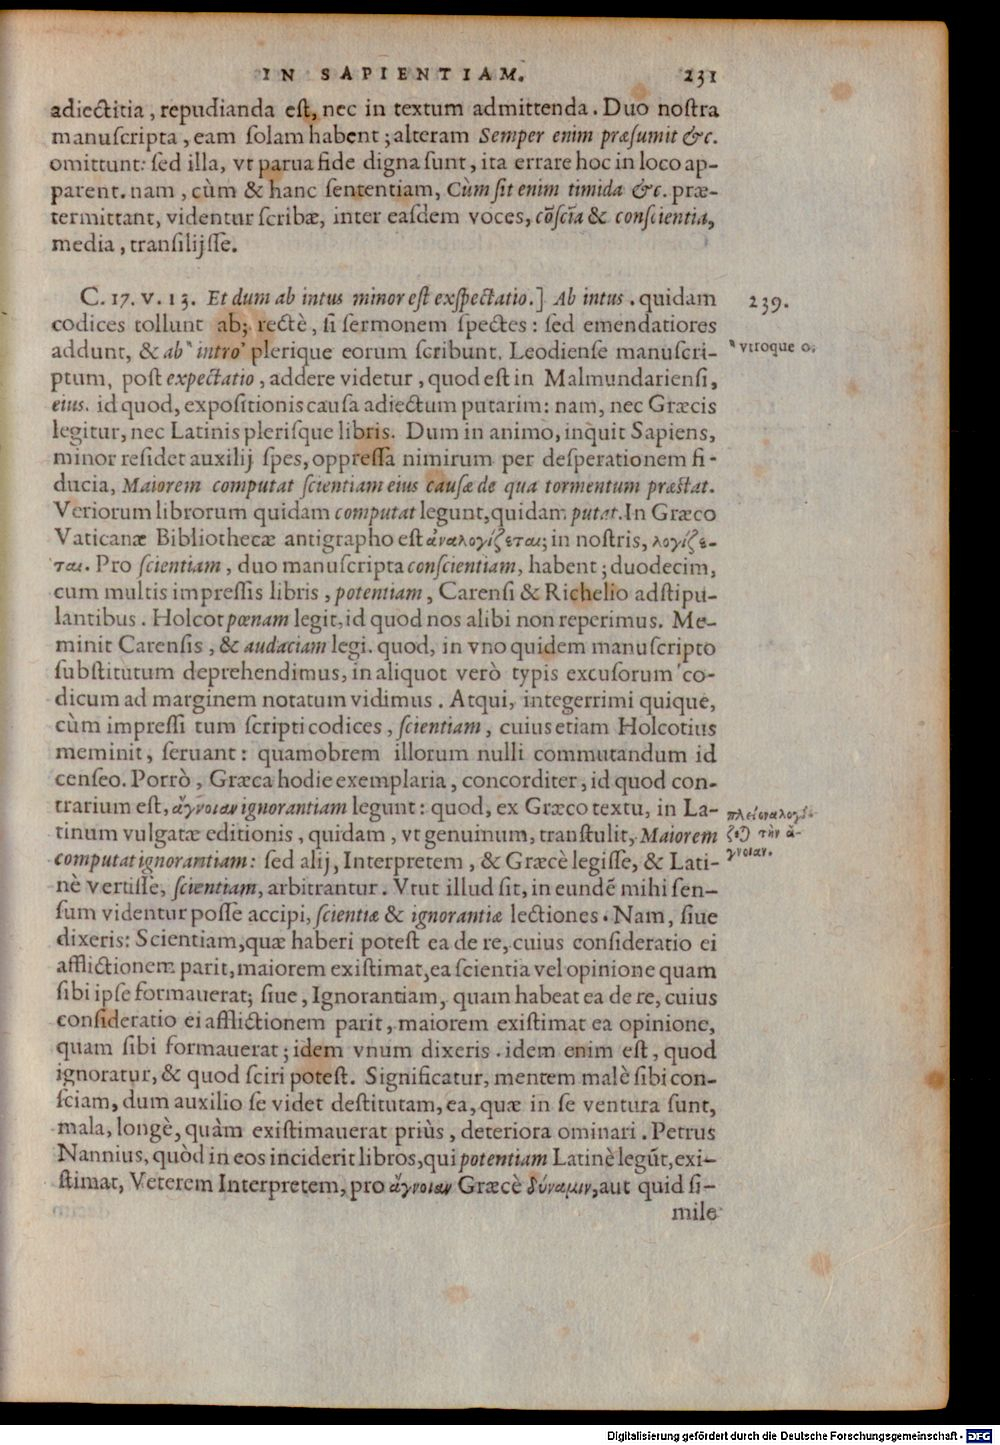 IN SAPIENTIAM. 231
adiectitia, repudianda est, nec in textum admittenda. Duo nostra
manuscripta, eam solam habent; alteram Semper enim præsumit &c.
omittunt: sed illa, vt parua fide digna sunt, ita errare hoc in loco ap-
parent. nam, cùm & hanc sententiam, Cùm sit enim timida &c. præ-
termittant, videntur scribæ, inter easdem voces, cōsciā & conscientia,
media, transilijsse.
C. 17. V. 13. Et dum ab intus minor est exspectatio.] Ab intus. quidam
239.
codices tollunt ab; rectè, si sermonem spectes: sed emendatiores
addunt, & ab" intro' plerique eorum scribunt. Leodiense manuscri-
" vtroque o.
ptum, post expectatio, addere videtur, quod est in Malmundariensi,
eius. id quod, expositionis causa adiectum putarim: nam, nec Græcis
legitur, nec Latinis plerisque libris. Dum in animo, inquit Sapiens,
minor residet auxilij spes, oppressa nimirum per desperationem fi-
ducia, Maiorem computat scientiam eius causæ de qua tormentum præstat.
Veriorum librorum quidam computat legunt, quidam putat. In Græco
Vaticanæ Bibliothecæ antigrapho est ἀναλογίζεται; in nostris, λογίζε-
ται. Pro scientiam, duo manuscripta conscientiam, habent; duodecim,
cum multis impressis libris, potentiam, Carensi & Richelio adstipu-
lantibus. Holcot pœnam legit, id quod nos alibi non reperimus. Me-
minit Carensis, & audaciam legi. quod, in vno quidem manuscripto
substitutum deprehendimus, in aliquot verò typis excusorum co-
dicum ad marginem notatum vidimus. Atqui, integerrimi quique,
cùm impressi tum scripti codices, scientiam, cuius etiam Holcotius
meminit, seruant: quamobrem illorum nulli commutandum id
censeo. Porrò, Græca hodie exemplaria, concorditer, id quod con-
trarium est, ἄγνοιαν ignorantiam legunt: quod, ex Græco textu, in La-
tinum vulgatæ editionis, quidam, vt genuinum, transtulit, Maiorem
computat ignorantiam: sed alij, Interpretem, & Græcè legisse, & Lati-
nè vertisse, scientiam, arbitrantur. Vtut illud sit, in eundē mihi sen-
sum videntur posse accipi, scientiæ & ignorantiæ lectiones. Nam, siue
dixeris: Scientiam, quæ haberi potest ea de re, cuius consideratio ei
afflictionem parit, maiorem existimat, ea scientia vel opinione quam
sibi ipse formauerat; siue, Ignorantiam, quam habeat ea de re, cuius
consideratio ei afflictionem parit, maiorem existimat ea opinione,
quam sibi formauerat; idem vnum dixeris. idem enim est, quod
ignoratur, & quod sciri potest. Significatur, mentem malè sibi con-
sciam, dum auxilio se videt destitutam, ea, quæ in se ventura sunt,
mala, longè, quàm existimauerat priùs, deteriora ominari. Petrus
Nannius, quòd in eos inciderit libros, qui potentiam Latinè legūt, exi-
stimat, Veterem Interpretem, pro ἄγνοιαν Græcè δύναμιν, aut quid si-
mile
τὴν ἄ-
γνοιαν.
Digitalisierung gefördert durch die Deutsche Forschungsgemeinschaft - DFG